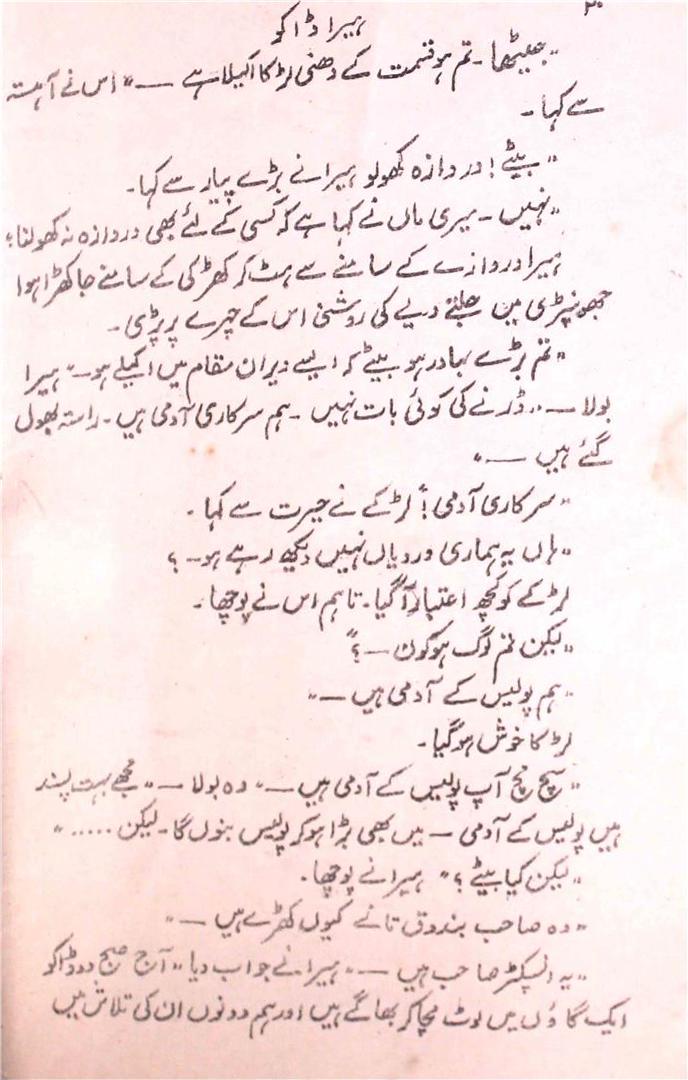 ۳۰
ہیرا ڈاکو
"بھیٹھا۔ تم ہو قسمت کے دھنی لڑکا اکیلا ہے —" اس نے آہستہ
سے کہا۔
"بیٹے! دروازہ کھولو ہیرا نے بڑے پیار سے کہا۔
"نہیں۔ میری ماں نے کہا ہے کہ کسی کے لئے بھی دروازہ نہ کھولنا"
ہیرا دروازے کے سامنے سے ہٹ کر کھڑکی کے سامنے جا کھڑا ہوا
جھونپڑی میں جلتے دیے کی روشنی اس کے چہرے پر پڑی۔
"تم بڑے بہادر ہو بیٹے کہ ایسے ویران مقام میں اکیلے ہو—" ہیرا
بولا — "ڈرنے کی کوئی بات نہیں۔ ہم سرکاری آدمی ہیں۔ راستہ بھول
گئے ہیں —"
"سرکاری آدمی!" لڑکے نے حیرت سے کہا۔
"ہاں یہ ہماری وردیاں نہیں دیکھ رہے ہو۔ ؟
لڑکے کو کچھ اعتبار آگیا۔ تاہم اس نے پوچھا۔
"لیکن تم لوگ ہو کون —؟"
"ہم پولیس کے آدمی ہیں —"
لڑکا خوش ہوگیا۔
"سچ مچ آپ پولیس کے آدمی ہیں —" وہ بولا — "مجھے بہت پسند
ہیں پولیس کے آدمی — میں بھی بڑا ہو کر پولیس بنوں گا۔ لیکن ....."
"لیکن کیا بیٹے؟" ہیرا نے پوچھا۔
"وہ صاحب بندوق تانے کیوں کھڑے ہیں —"
"یہ انسپکٹر صاحب ہیں —" ہیرا نے جواب دیا "آج صبح دو ڈاکو
ایک گاؤں میں لوٹ مچا کر بھاگے ہیں اور ہم دونوں ان کی تلاش میں